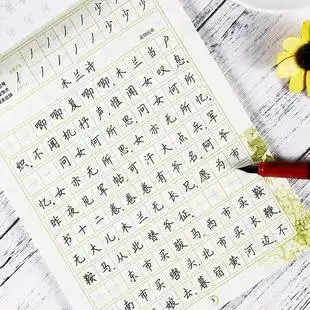 木兰诗
唧唧复唧唧,木兰当户
织,不闻机杼声,惟闻女叹息,
问女何所思,问女何所
忆,女亦无所思,女亦无所忆,
昨夜见军帖,可汗大点兵,军
书十二卷,卷卷有爷名,阿爷
无大儿,木兰无长兄,愿为市
鞍马,从此替爷征,
东市买骏马,西市买鞍
南市买辔头,北市买长
去,暮宿黄河边,不